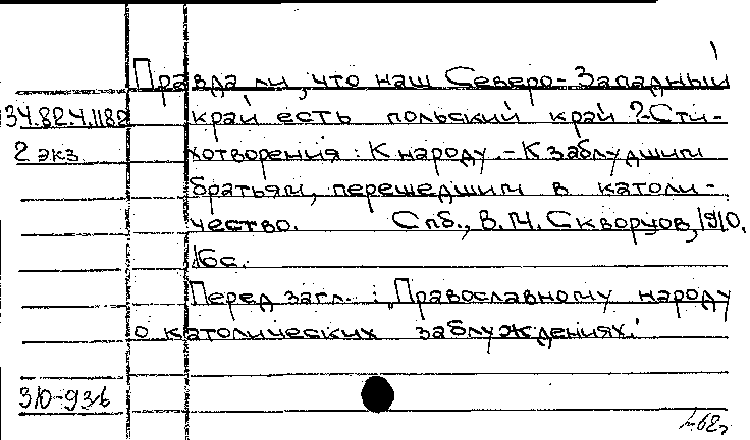 Правда ли, что наш Северо-Западный
34.82.4.1182 край есть польский край?-Сти-
2 экз. хотворения: К народу.-К заблудшим
братьям, перешедшим в католи-
чество. Спб., В.М. Скворцов, 1910.
16с.
Перед загл.: "Православному народу
о католических заблуждениях."
310-93б